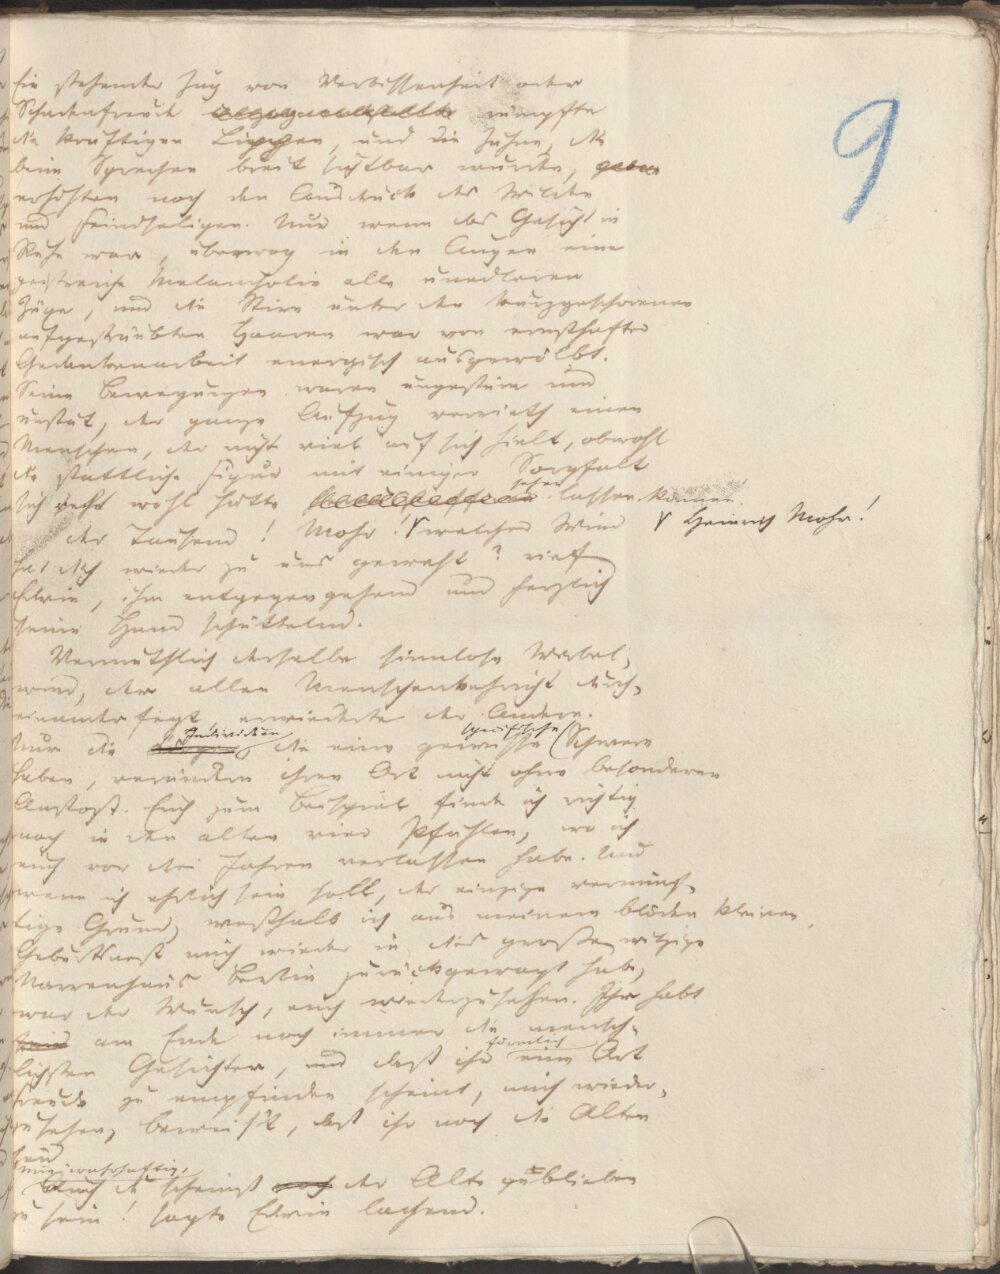 9
Ein stehender Zug von Verbissenheit oder
Schadenfreude rümpfte
die kräftigen Lippen, und die Zähne, die
beim Sprechen breit sichtbar wurden,
erhöhten noch den Ausdruck des Wilden
und Feindseligen. Nur wenn das Gesicht in
Ruhe war, überwog in den Augen eine
geistreiche Melancholie alle unedleren
Züge, und die Stirn unter den kurzgeschorenen
aufgesträubten Haaren war von ernsthafter
Gedankenarbeit energisch ausgewölbt.
Seine Bewegungen waren ungestüm und
unstät, der ganze Aufzug verrieth einen
Menschen, der nicht viel auf sich hielt, obwohl
die stattliche Figur mit einiger Sorgfalt
sich recht wohl hätte sehen lassen können.
der Tausend! Mohr! Heinrich Mohr! welcher Wind
hat dich wieder zu uns geweht? rief
Edwin, ihm entgegengehend und herzlich
seine Hand schüttelnd.
Vermuthlich derselbe sinnlose Wirbel-
wind, der allen Menschenkehricht durch-
einander fegt, erwiederte der Andere.
Nur die Individuen, die eine gewisse spezifische Schwere
haben, verändern ihren Ort nicht ohne besonderen
Anstoß. Euch zum Beispiel finde ich richtig
noch in den alten vier Pfählen, wo ich
euch vor drei Jahren verlassen habe. Und
wenn ich ehrlich sein soll, der einzige vernünf-
tige Grund, weßhalb ich aus meinem blöden kleinen
Geburtsnest mich wieder in dies große witzige
Narrenhaus Berlin zurückgewagt habe,
war der Wunsch, euch wiederzusehen. Ihr habt
am Ende noch immer die mensch-
lichsten Gesichter, und daß ihr förmlich eine Art
Freude zu empfinden scheint, mich wieder-
zusehen, beweis't, daß ihr noch die Alten
seid
Auch du scheinst der Alte geblieben
zu sein! sagte Edwin lachend.